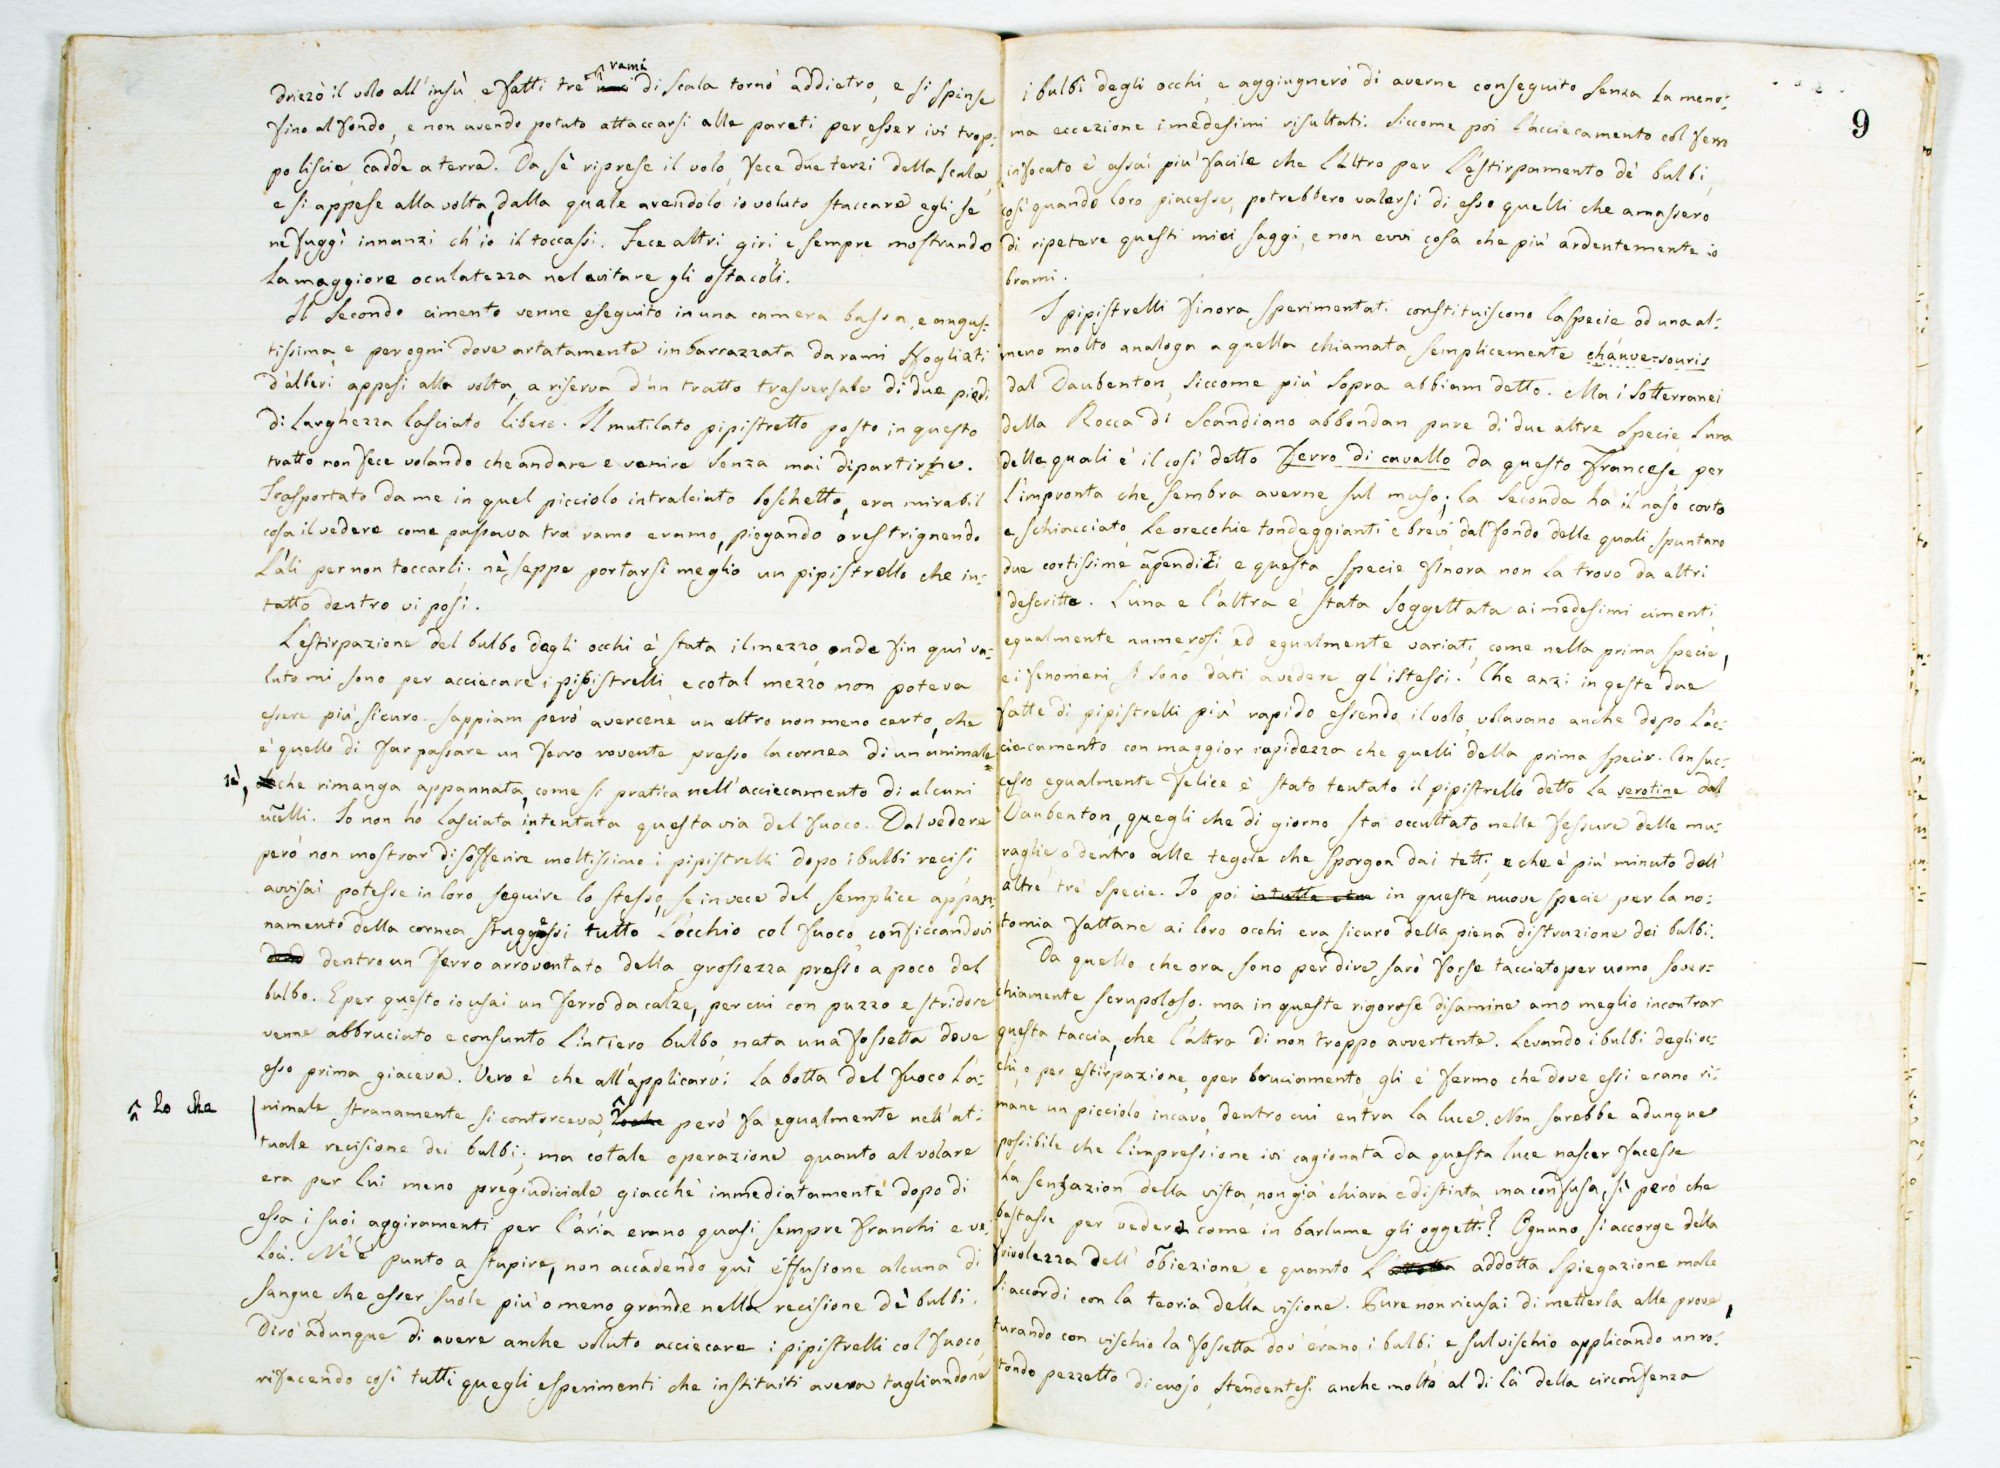 drizzò il volo all'insù, e fatti tre rami di scala tornò addietro, e si spinse
fino al fondo, e non avendo potuto attaccarsi alle pareti per esser ivi trop-
po liscie, cadde a terra. Da sè riprese il volo, fece due terzi della scala,
e si appese alla volta, dalla quale avendolo io voluto staccare egli se
ne fuggì innanzi ch'io il toccassi. Fece altri giri e sempre mostrando
la maggiore oculatezza nel evitare gli ostacoli.
Il secondo cimento venne eseguito in una camera bassa, e angus-
tissima, e per ogni dove artatamente imbarrazzata da rami sfogliati
d'alberi appesi alla volta, a riserva d'un tratto trasversale di due piedi
di larghezza lasciato libero. Il mutilato pipistrello posto in questo
tratto non fece volando che andare e venire senza mai dipartirne.
Trasportato da me in quel picciolo intralciato boschetto, era mirabil
cosa il vedere come passava tra ramo e ramo, piegando o restrignendo
l'ali per non toccarli. nè seppe portarsi meglio un pipistrello che in-
tatto dentro vi posi.
L'estirpazione del bulbo degli occhi è stata il mezzo, onde fin quì va-
luto mi sono per acciecare i pipistrelli, e cotal mezzo non poteva
essere più sicuro. Sappiam però avercene un altro non meno certo, che
è quello di far passare un ferro rovente presso la cornea di un animale
sì, che rimanga appannata, come si pratica nell'acciecamento di alcuni
ucelli. Io non ho lasciata intentata questa via del fuoco. Dal vedere
però non mostrar di sofferire moltissimo i pipistrelli dopo i bulbi recisi
avvisai potesse in loro seguire lo stesso, se in vece del semplice appan-
namento della cornea struggessi tutto l'occhio col fuoco, conficcandovi
dentro un ferro arroventato della grossezza presso a poco del
bulbo. E per questo io usai un ferro da calze, per cui con puzzo e stridore
venne abbruciato e consunto l'intiero bulbo, nata una fossetta dove
esso prima giaceva. Vero è che all'applicarvi la botta del fuoco l'a-
nimale stranamente si contorceva, lo che però fa egualmente nell'at-
tuale recisione dei bulbi; ma cotale operazione quanto al volare
era per lui meno pregiudiciale, giacchè immediatamente dopo di
essa i suoi aggiramenti per l'aria erano quasi sempre franchi e ve-
loci. Nè è punto a stupire, non accadendo quì effusione alcuna di
sangue, che esser suole più o meno grande nella recisione dè bulbi.
Dirò adunque di avere anche voluto acciecare i pipistrelli col fuoco,
rifacendo così tutti quegli esperimenti che instituiti aveva tagliandone
9
i bulbi degli occhi, e aggiugnerò di averne conseguito senza la meno-
ma eccezione i medesimi risultati. Siccome poi l'acciecamento col ferro
infocato è assai più facile che l'altro per l'estirpamento dè bulbi,
così quando loro piacesse, potrebbero valersi di esso quelli che amassero
di ripetere questi miei saggi, e non evvi cosa che più ardentemente io
brami.
I pipistrelli finora sperimentati constituiscono la specie od una al-
meno molto analoga a quella chiamata semplicemente chauve-souris
dal Daubenton, siccome più sopra abbiam detto. Ma i sotterranei
della Rocca di Scandiano abbondan pure di due altre specie, l'una
delle quali è il così detto ferro di cavallo da questo francese per
l'impronta che sembra averne sul muso; la seconda ha il naso corto
e schiacciato le orecchie tondeggianti e brevi dal fondo delle quali spuntano
due cortissime apendici e questa specie finora non la trovo da altri
descritta. L'una e l'altra è stata soggettata ai medesimi cimenti,
egualmente numerosi, ed egualmente variati, come nella prima specie,
e i fenomeni si sono dati a vedere gl'istessi. Che anzi in queste due
fatte di pipistrelli più rapido essendo il volo, volavano anche dopo l'ac-
ciecamento con maggior rapidezza che quelli della prima specie. Con suc-
cesso egualmente felice è stato tentato il pipistrello detto la serotine dal
Daubenton, quegli che di giorno sta occultato nelle fessure delle mu-
raglie o dentro alle tegole che sporgon dai tetti, e che è più minuto dell'
altre trè specie. Io poi in queste nuove specie per la no-
tomia fattane ai loro occhi era sicuro della piena distruzione dei bulbi.
Da quello che ora sono per dire sarò forse tacciato per uomo sover-
chiamente scrupoloso. ma in queste rigorose disamine amo meglio incontrar
questa taccia, che l'altra di non troppo avvertente. Levando i bulbi degli oc-
chi, o per estirpazione, o per bruciamento, gli è fermo che dove essi erano ri-
mane un picciolo incavo, dentro cui entra la luce. Non sarebbe adunque
possibile che l'impressione ivi cagionata da questa luce nascer facesse
la sensazion della vista, non già chiara e distinta ma confusa, sì però che
bastasse per vedere come in barlume gli oggetti? Ognuno si accorge della
frivolezza dell'obiezione, e quanto l'addotta spiegazione male
si accordi con la teoria della visione. Pure non ricusai di metterla alle prove,
turando con vischio la fossetta dov'erano i bulbi e sul vischio applicando un ro-
tondo pezzetto di cuojo, stendentesi anche molto al di là della circonfenza
sì,
lo che